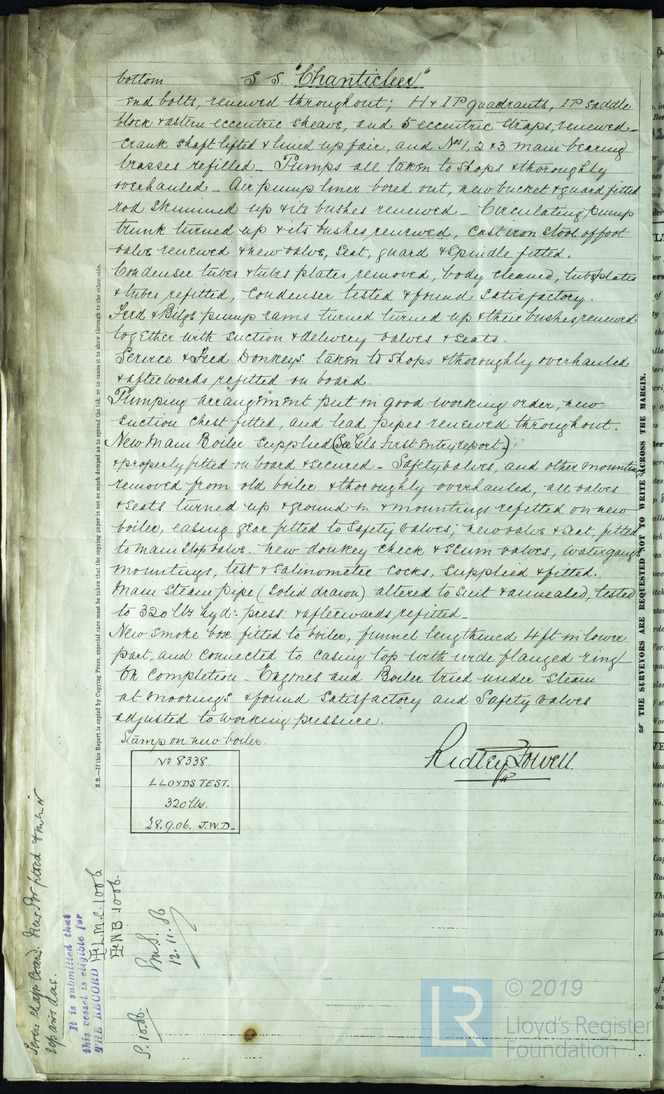 S. S. "Chanticleer"
bottom
end bolts, renewed throughout; H & I P quadrants, I P saddle
block & astern eccentric sheave, and 5 eccentric straps, renewed
crank shaft lifted & lined up fair, and Nos 1, 2 & 3 main bearing
brasses refilled. Pumps all taken to shops & thoroughly
overhauled. Air pump liner bored out, new bucket & guard fitted
rod skimmed up & its bushes renewed. Circulating pump
trunk turned up & its bushes renewed, cast iron stool of foot
valve renewed & new valve, seat, guard & spindle fitted.
Condenser tubes & tubes plates removed, body cleaned, tubeplates
& tubes refitted, condenser tested & found satisfactory.
Feed & Bilge pump rams turned turned up & their bushes renewed
together with suction & delivery valves & seats.
Service & Feed Donkeys taken to shops & thoroughly overhauled
& afterwards refitted on board.
Pumping arrangement put in good working order, new
suction chest fitted, and lead pipes renewed throughout.
New Main Boiler supplied (See Gls First Entry report)
& properly fitted on board & secured. Safety valves, and other mountings
removed from old boiler & thoroughly overhauled, all valves
& seats turned up & ground in & mountings refitted on new
boiler, easing gear fitted to safety valves; new valve & seat, fitted
to main stop valve. new donkey check & scum valves, water gauge
mountings, test & salinometer cocks, supplied & fitted.
Main steam pipe (solid drawn) altered to suit & annealed, tested
to 320 lbs hyd: press: & afterwards refitted.
New smoke box fitted to boiler, funnel lengthened 4 ft in lower
part, and connected to casing top with wide flanged ring
On completion Engines and Boiler tried under steam
at moorings & found satisfactory and safety valves
adjusted to working pressure.
Stamp on new boiler.
No 8338.
LLOYDS TEST.
320 lbs.
28.9.06. J.W.D.
Ridley Fowell
N.B.—If this Report is copied by Copying Press, especial care must be taken that the copying paper is not so much damped as to spread the ink, or to cause it to show through to the other side.
THE SURVEYORS ARE REQUESTED NOT TO WRITE ACROSS THE MARGIN.
It is submitted that
this vessel is eligible for
THE RECORD L.M.C. 10.06
N B 10.06.
12.11.06
S. 10.06.
© 2019
LR
Lloyd's Register
Foundation